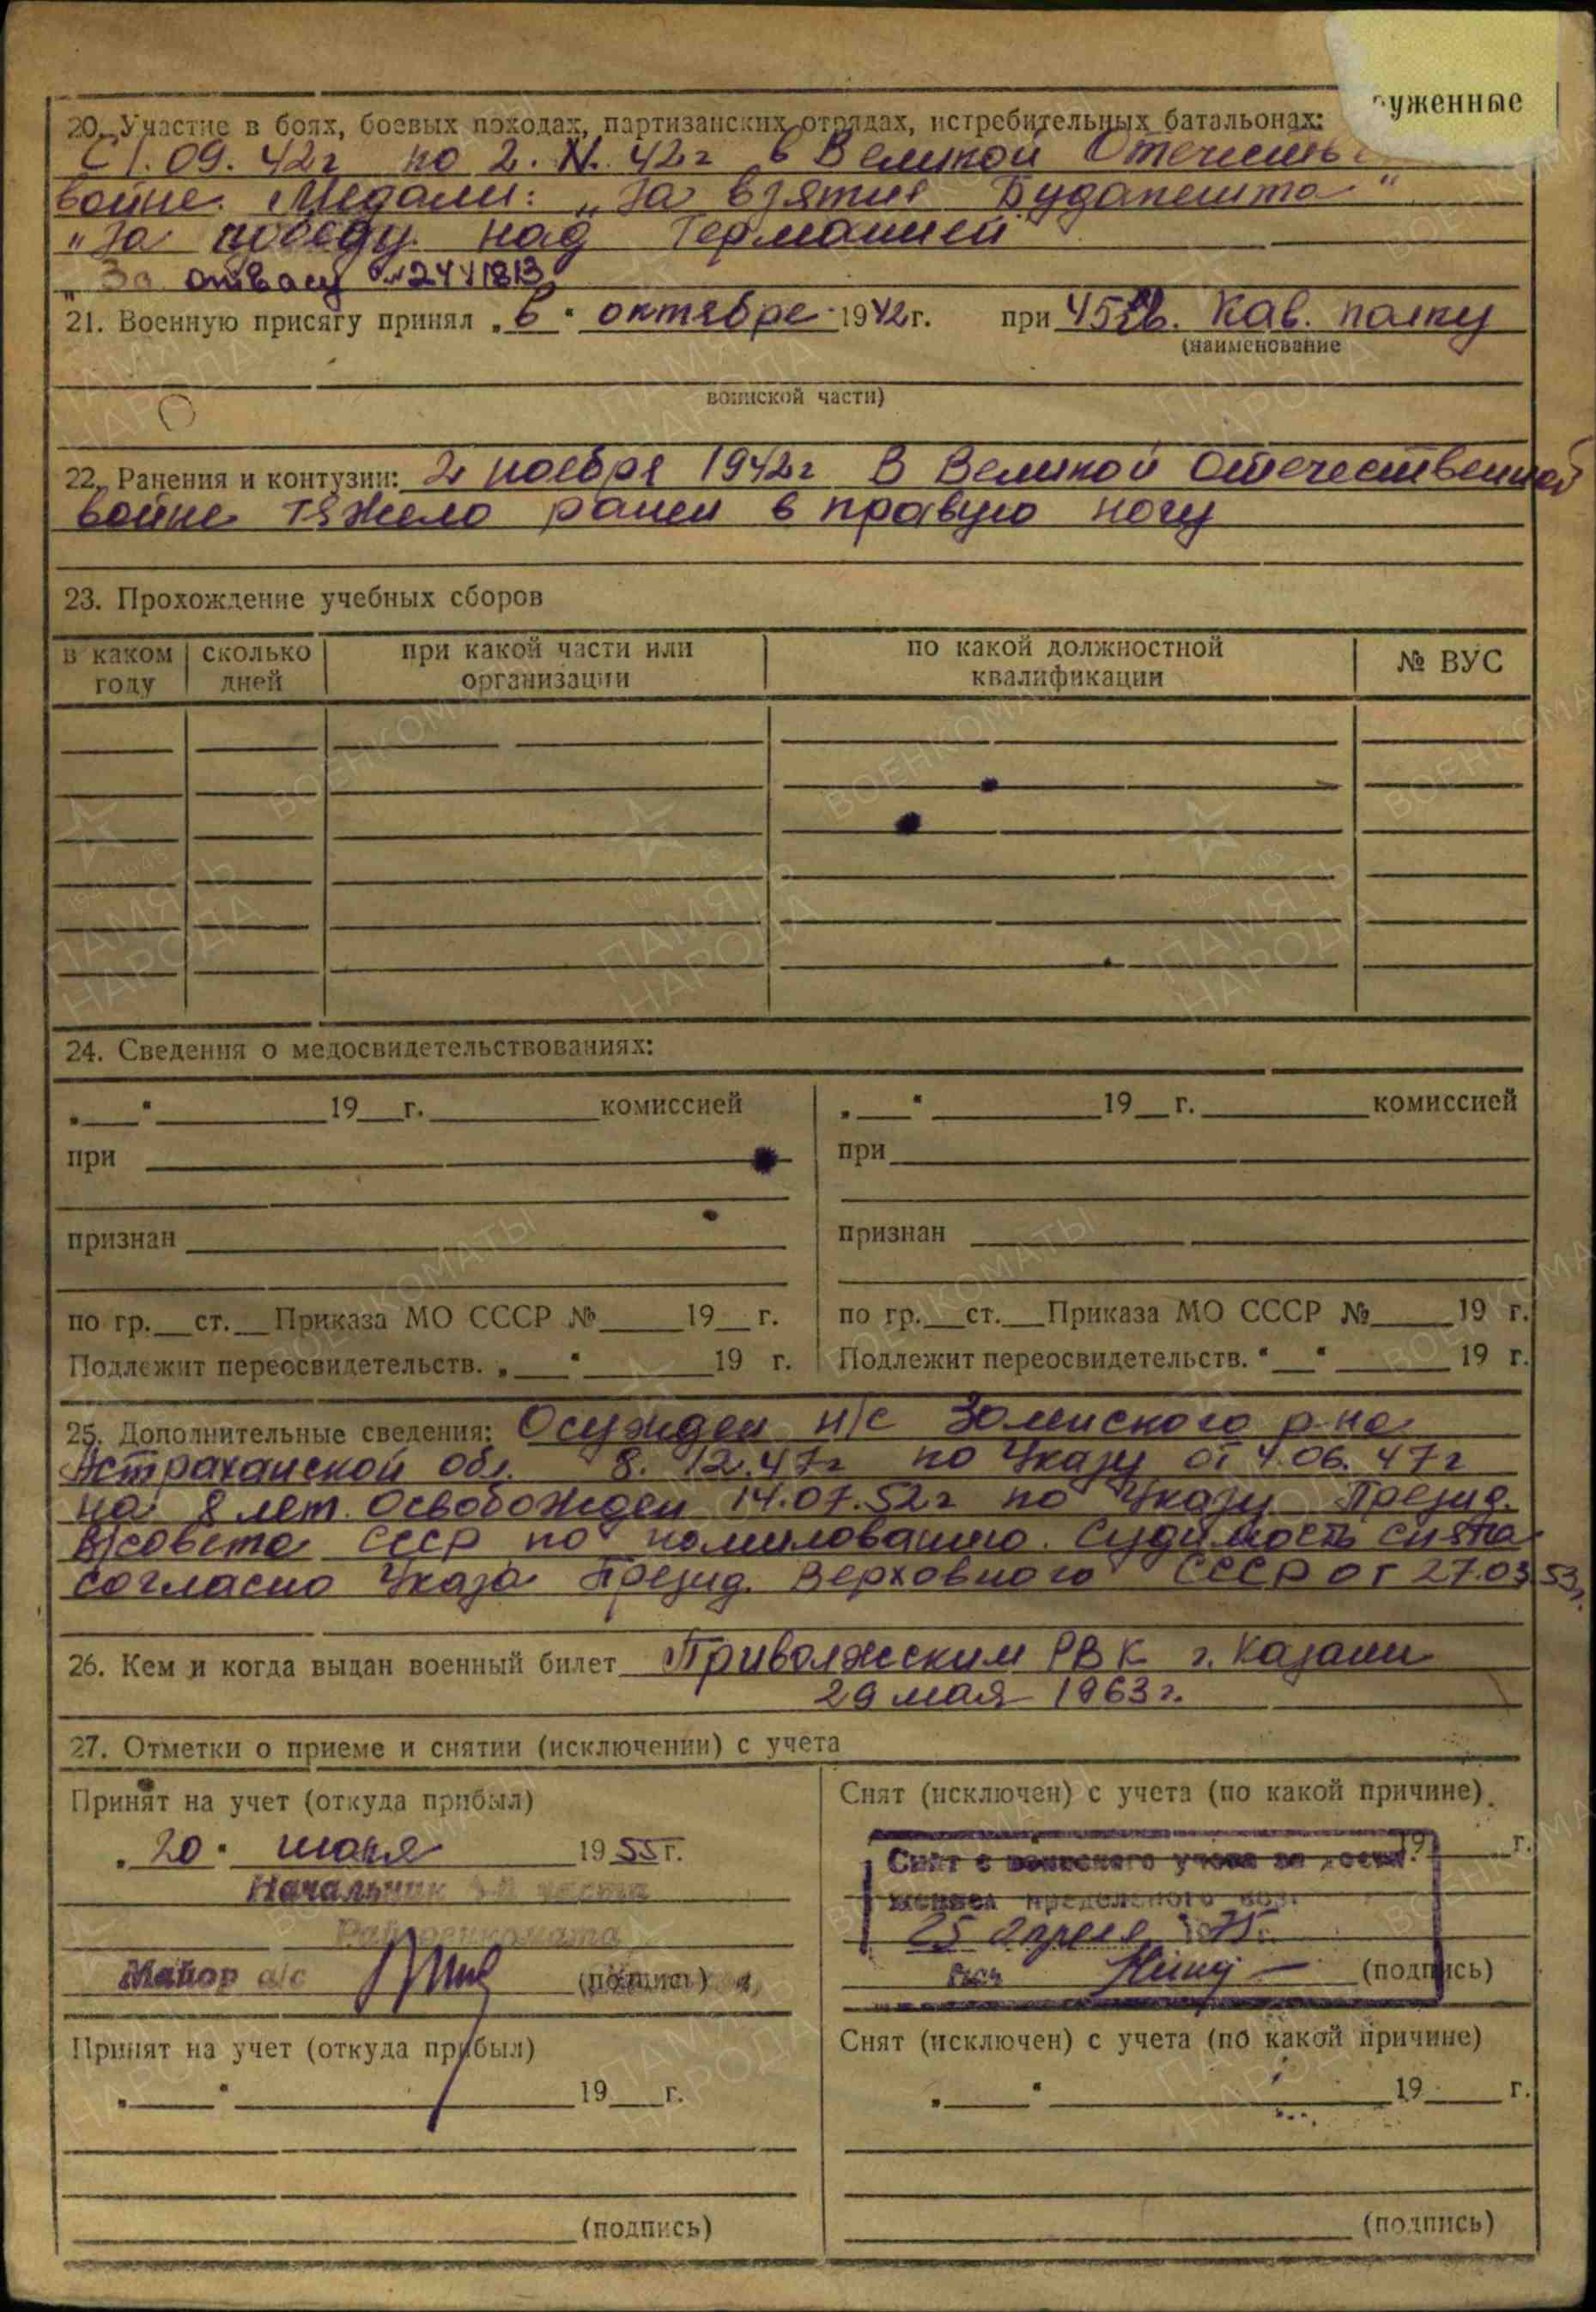 уженные
20. Участие в боях, боевых походах, партизанских отрядах, истребительных батальонах:
С 1.09.42г по 2.XI.42г в Великой Отечеств
войне. Медали: „За взятие Будапешта"
„За победу над Германией"
"За отвагу"
21. Военную присягу принял „6" октября 1942г. при Кав. полку
(наименование
воинской части)
22. Ранения и контузии: 2 ноября 1942г В Великой Отечественной
войне тяжело ранен в правую ногу
23. Прохождение учебных сборов
в каком году сколько дней при какой части или организации по какой должностной квалификации № ВУС
24. Сведения о медосвидетельствованиях:
„ " 19 г. комиссией
при
признан
по гр. ст. Приказа МО СССР № 19 г.
Подлежит переосвидетельств. „ " 19 г.
„ " 19 г. комиссией
при
признан
по гр. ст. Приказа МО СССР № 19 г.
Подлежит переосвидетельств. " " 19 г.
25. Дополнительные сведения: Осужден н/с р-на
Астраханской обл. 8.12.47г по Указу от 4.06.47г
на 8 лет. Освобожден 14.07.52г по Указу Презид.
В/совета СССР по помилованию. Судимость снята
согласно Указа Презид. Верховного СССР от 27.03.53г.
26. Кем и когда выдан военный билет Приволжским РВК г. Казани
29 мая 1963г.
27. Отметки о приеме и снятии (исключении) с учета
Принят на учет (откуда прибыл)
„20" 1955г.
Начальник части
Райвоенкомата
Майор а/с (подпись)
Снят (исключен) с учета (по какой причине).
19 г.
Снят с воинского учета по дости-
жении предельного воз.
25 апреля 1975г.
(подпись)
Принят на учет (откуда прибыл)
„ " 19 г.
(подпись)
Снят (исключен) с учета (по какой причине)
„ " 19 г.
(подпись)
ВОЕНКОМАТЫ
1941-1945
ПАМЯТЬ
НАРОДА